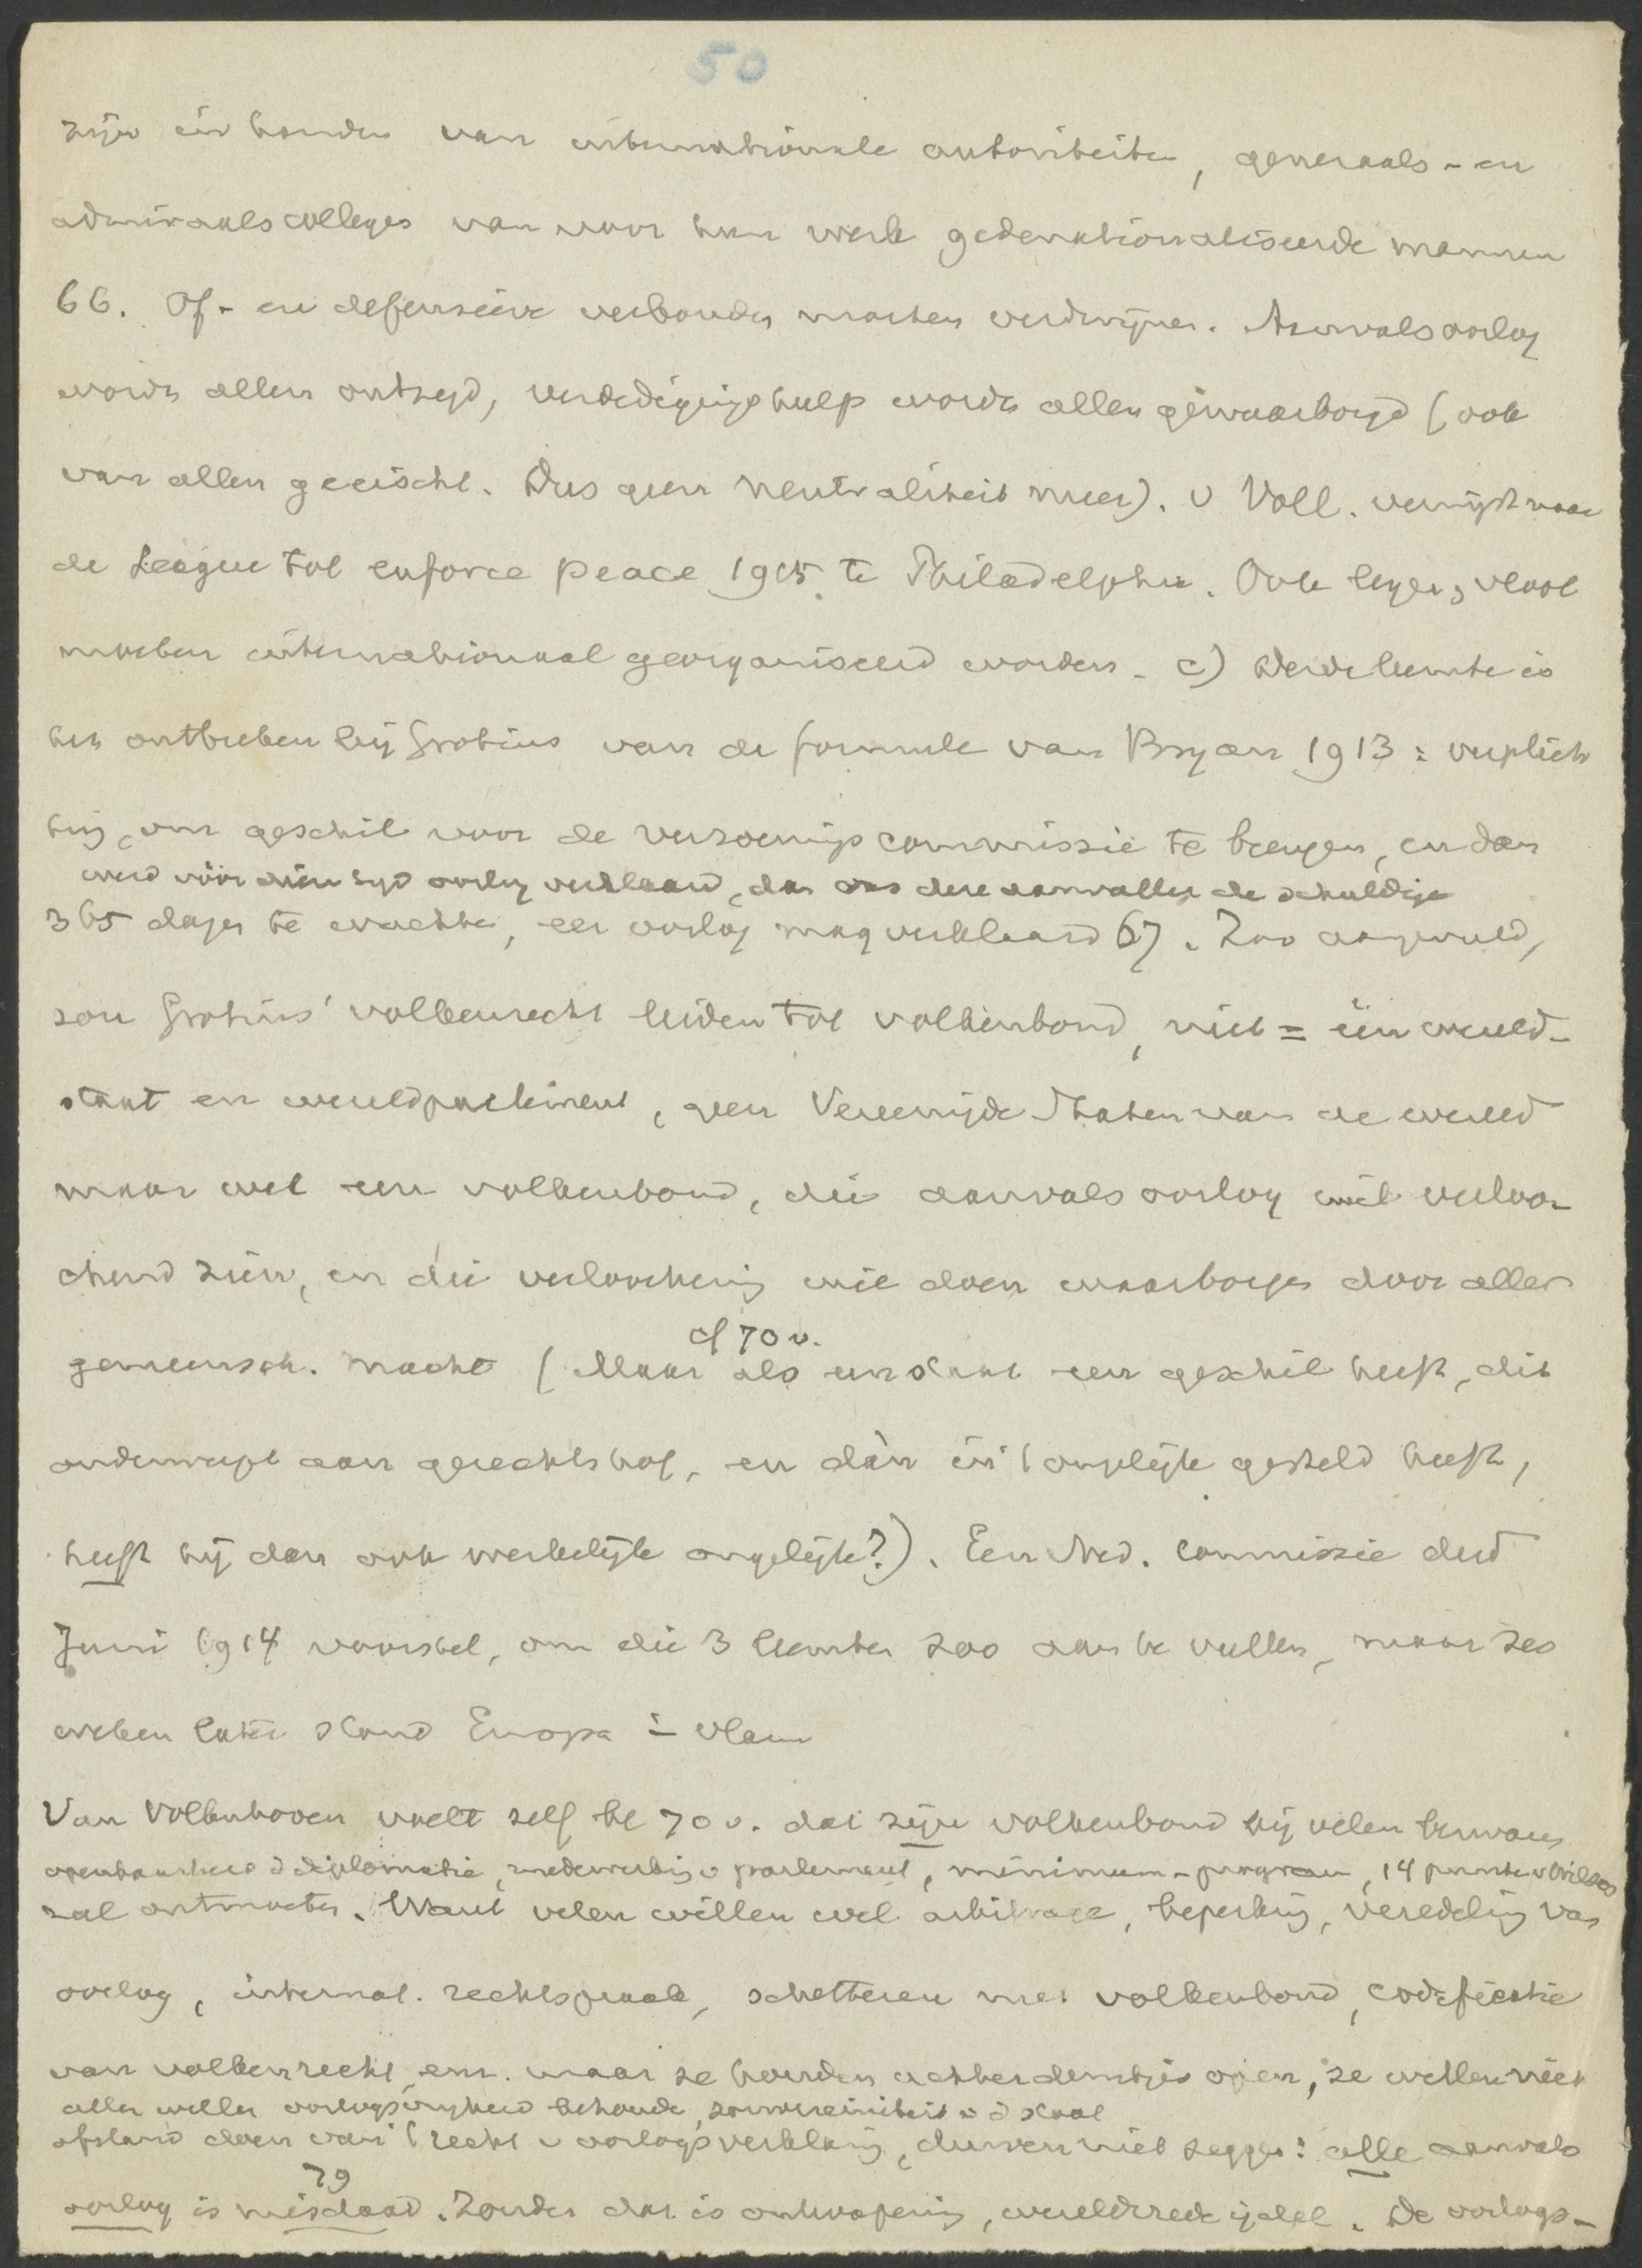 50
zijn in handen van internationale autoriteiten, generaals- en
admiraalscolleges van voor hun werk gedenationaliseerde mannen
66. Of- en defensieve verbonden moeten verdwijnen. Aanvalsoorlog
wordt allen ontzegd, verdedigingshulp wordt allen gewaarborgd (ook
van allen geeischt. Dus geen neutraliteit meer). v Voll. verwijst naar
de League tot enforce peace 1915 te Philadelphia. Ook leger, vloot
moeten internationaal georganiseerd worden. c) Derde leemte is
het ontbreken bij Grotius van de formule van Bryan 1913: verplich
ting, om geschil voor de verzoenings commissie te brengen, en dan
werd vóór dien tijd oorlog verklaard, dan was deze aanvaller de schuldige
365 dagen te wachten, eer oorlog mag verklaard 67. Zoo aangevuld,
zou Grotius' volkenrecht leiden tot volkenbond, niet = één wereld-
staat en wereldparlement, geen Vereenigde Staten van de wereld
maar wel een volkenbond, die aanvalsoorlog wil verloo-
chend zien, en die verloochening wil doen waarborgen door aller
cf 70 v.
gemeensch. macht (Maar als een staat een geschil heeft, dit
onderwerpt aan gerechtshof, en dàn in 't ongelijk gesteld heeft,
heeft hij dan ook werkelijk ongelijk?). Een Ned. commissie deed
Juni 1914 voorstel, om die 3 leemten zoo aan te vullen, maar zes
weken later stond Europa in vlam
Van Vollenhoven voelt zelf bl 70 v. dat zijn volkenbond bij velen bezwaren
openbaarheid d diplomatie, medewerking v parlement, minimum-program, 14 punten v Wilson
zal ontmoeten. Want velen willen wel arbitrage, beperking, veredeling van
oorlog, internat. rechtspraak, schetteren met volkenbond, codificatie
van volkenrecht enz. maar ze houden achterdeurtjes open, ze willen niet
allen willen oorlogsvrijheid behouden, souvereiniteit v d staat
afstand doen van 't recht v oorlogsverklaring, durven niet zeggen: alle aanvals
79
oorlog is misdaad. Zonder dat is ontwapening, wereldvrede ijdel. De oorlogs-